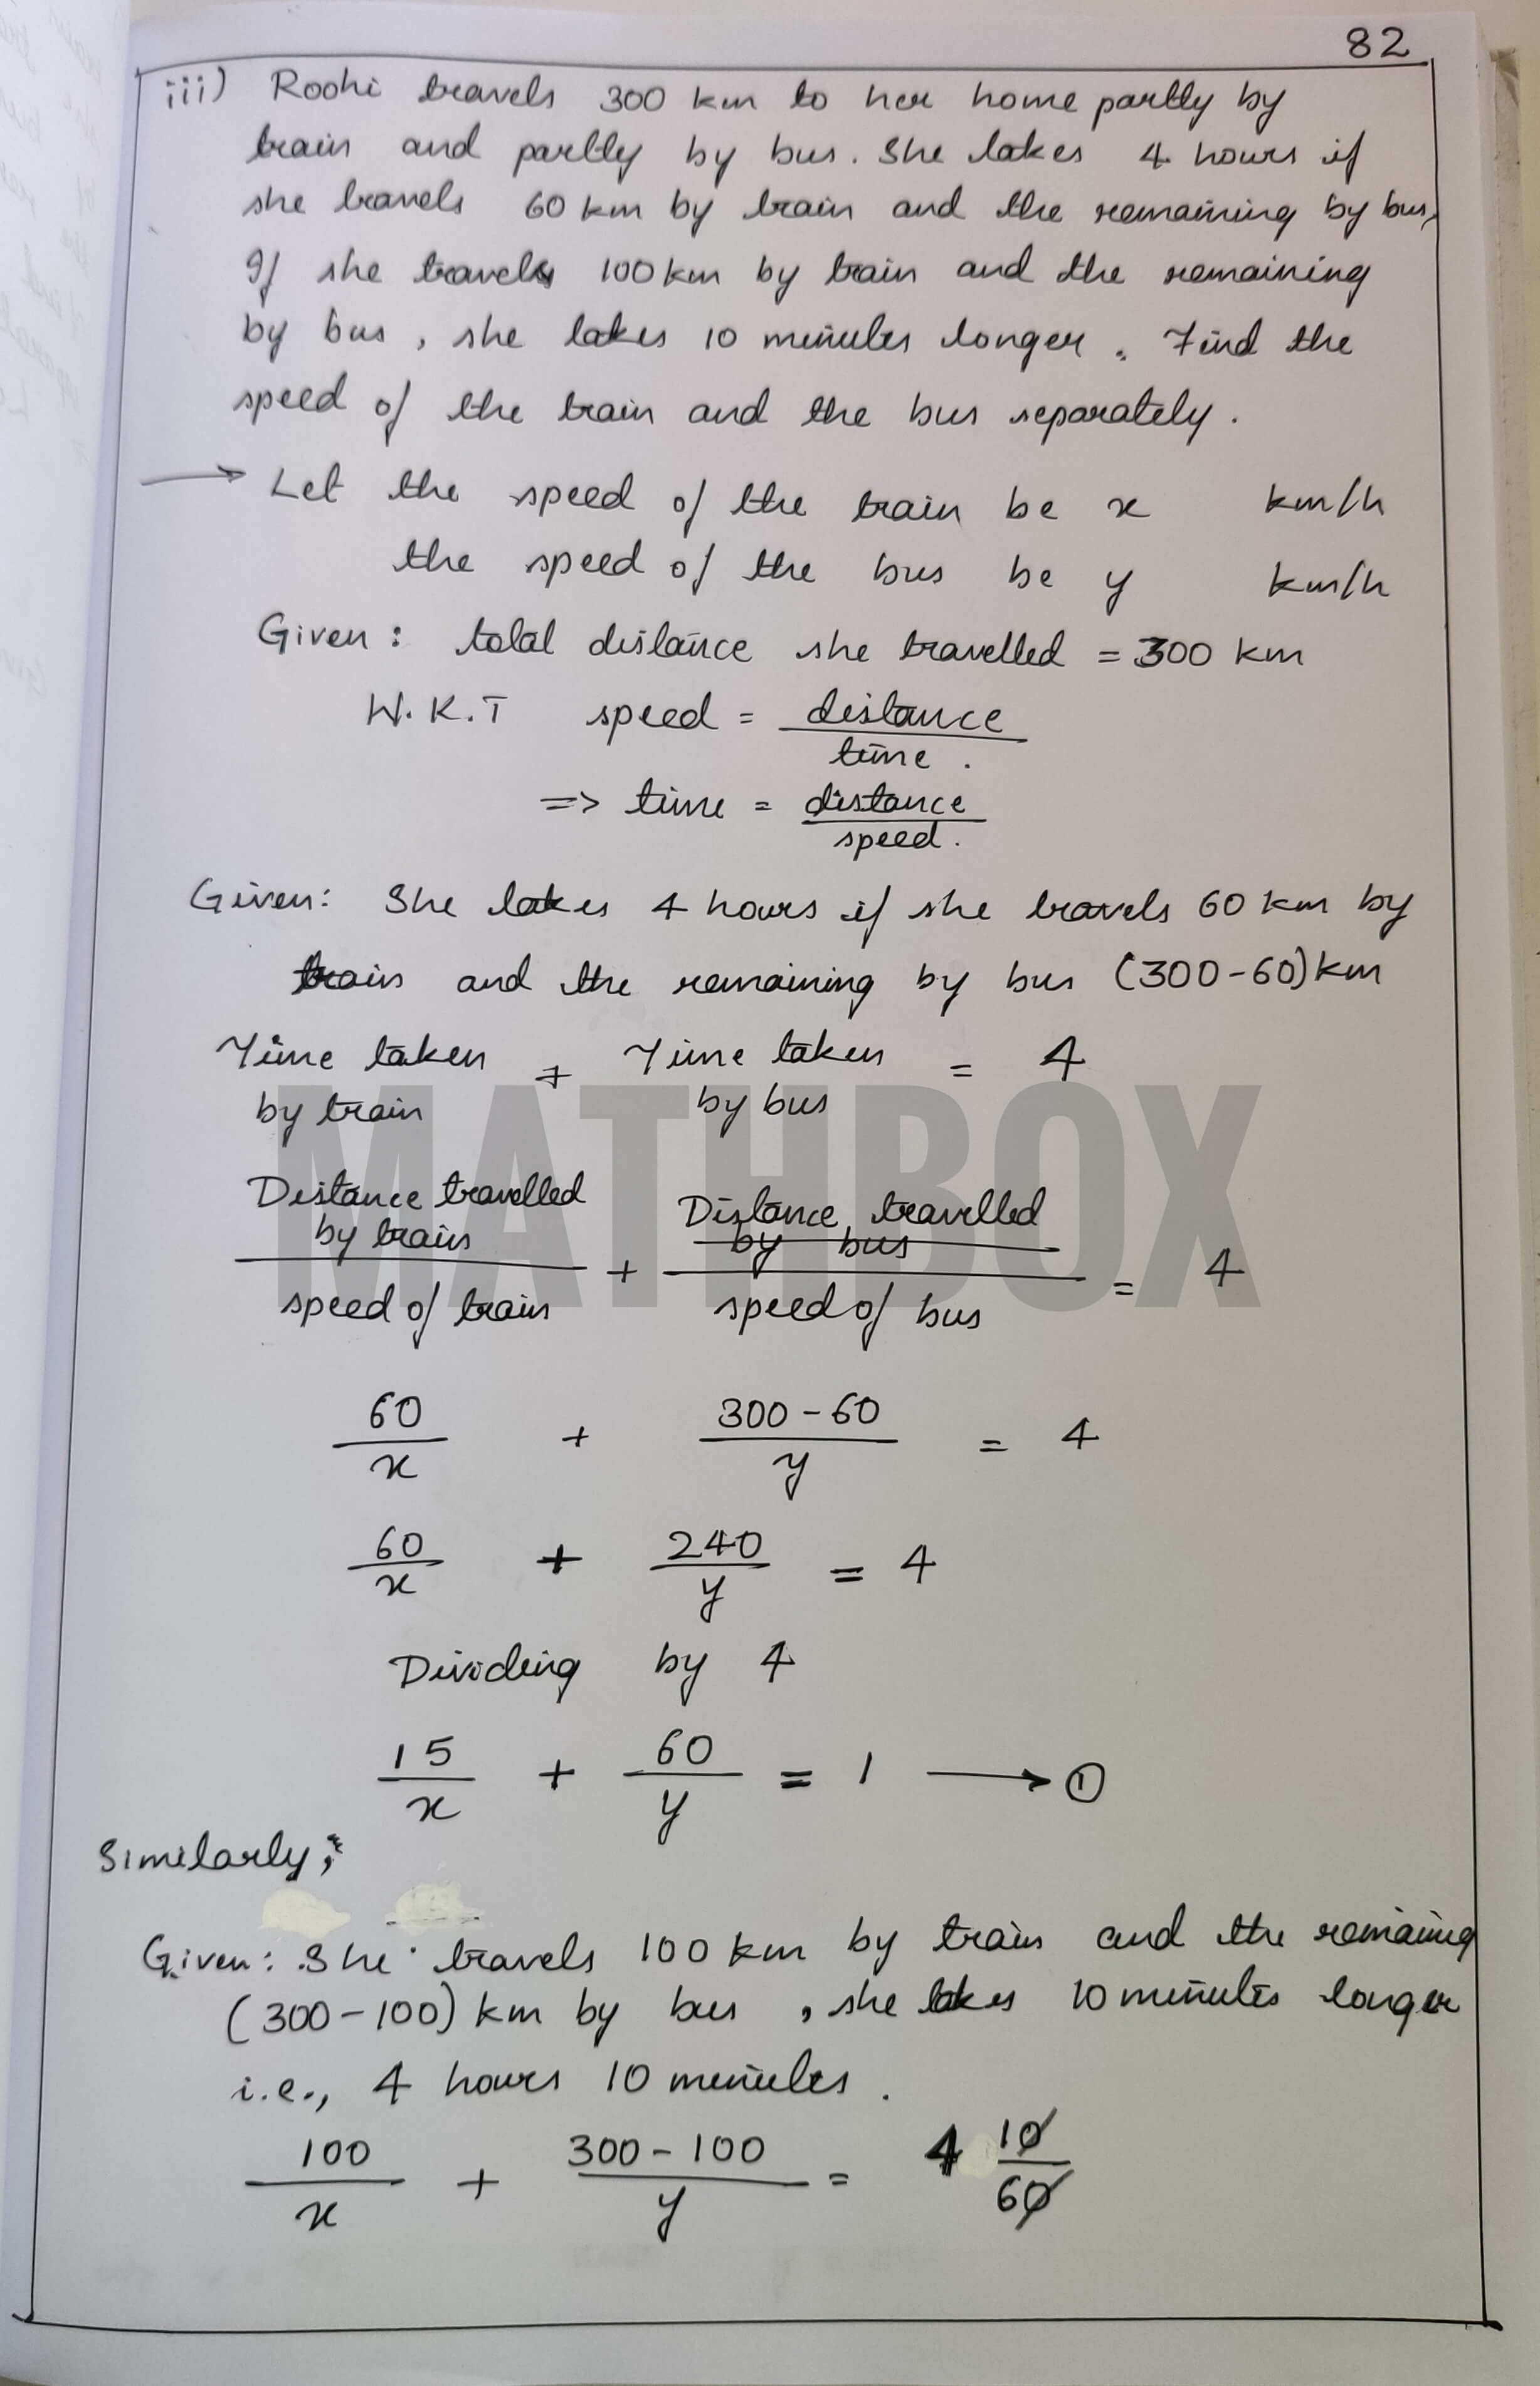 82
iii) Roohi travels 300 km to her home partly by
train and partly by bus. She takes 4 hours if
she travels 60 km by train and the remaining by bus,
If she travels 100 km by train and the remaining
by bus, she takes 10 minutes longer. Find the
speed of the train and the bus separately.
→ Let the speed of the train be x km/h
the speed of the bus be y km/h
Given: total distance she travelled = 300 km
W.K.T speed = distance
time.
=> time = distance
speed.
Given: She takes 4 hours if she travels 60 km by
train and the remaining by bus (300-60) km
Time taken + Time taken = 4
by train by bus
MATHBOX
Distance travelled Distance travelled
by train by bus
+ = 4
speed of train speed of bus
60 300-60
+ = 4
x y
60 240
+ = 4
x y
Dividing by 4
15 60
+ = 1 → ①
x y
Similarly;
Given: She travels 100 km by train and the remaining
(300-100) km by bus, she takes 10 minutes longer
i.e., 4 hours 10 minutes.
100 300-100 10
+ = 4
x y 60